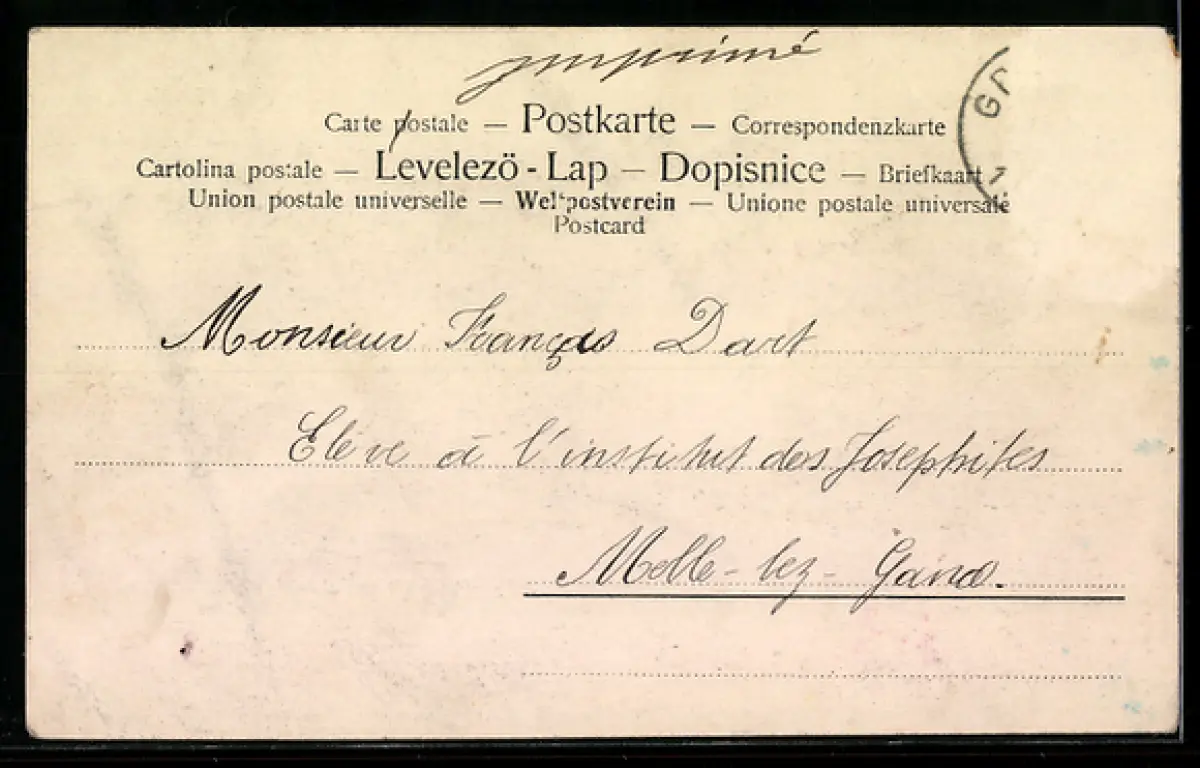 Imprimé
Carte postale — Postkarte — Correspondenzkarte
Cartolina postale — Levelező - Lap — Dopisnice — Briefkaart
Union postale universelle — Weltpostverein — Unione postale universale
Postcard
Monsieur François Dart
Elève à l'institut des Josephites
Melle-lez-Gand.